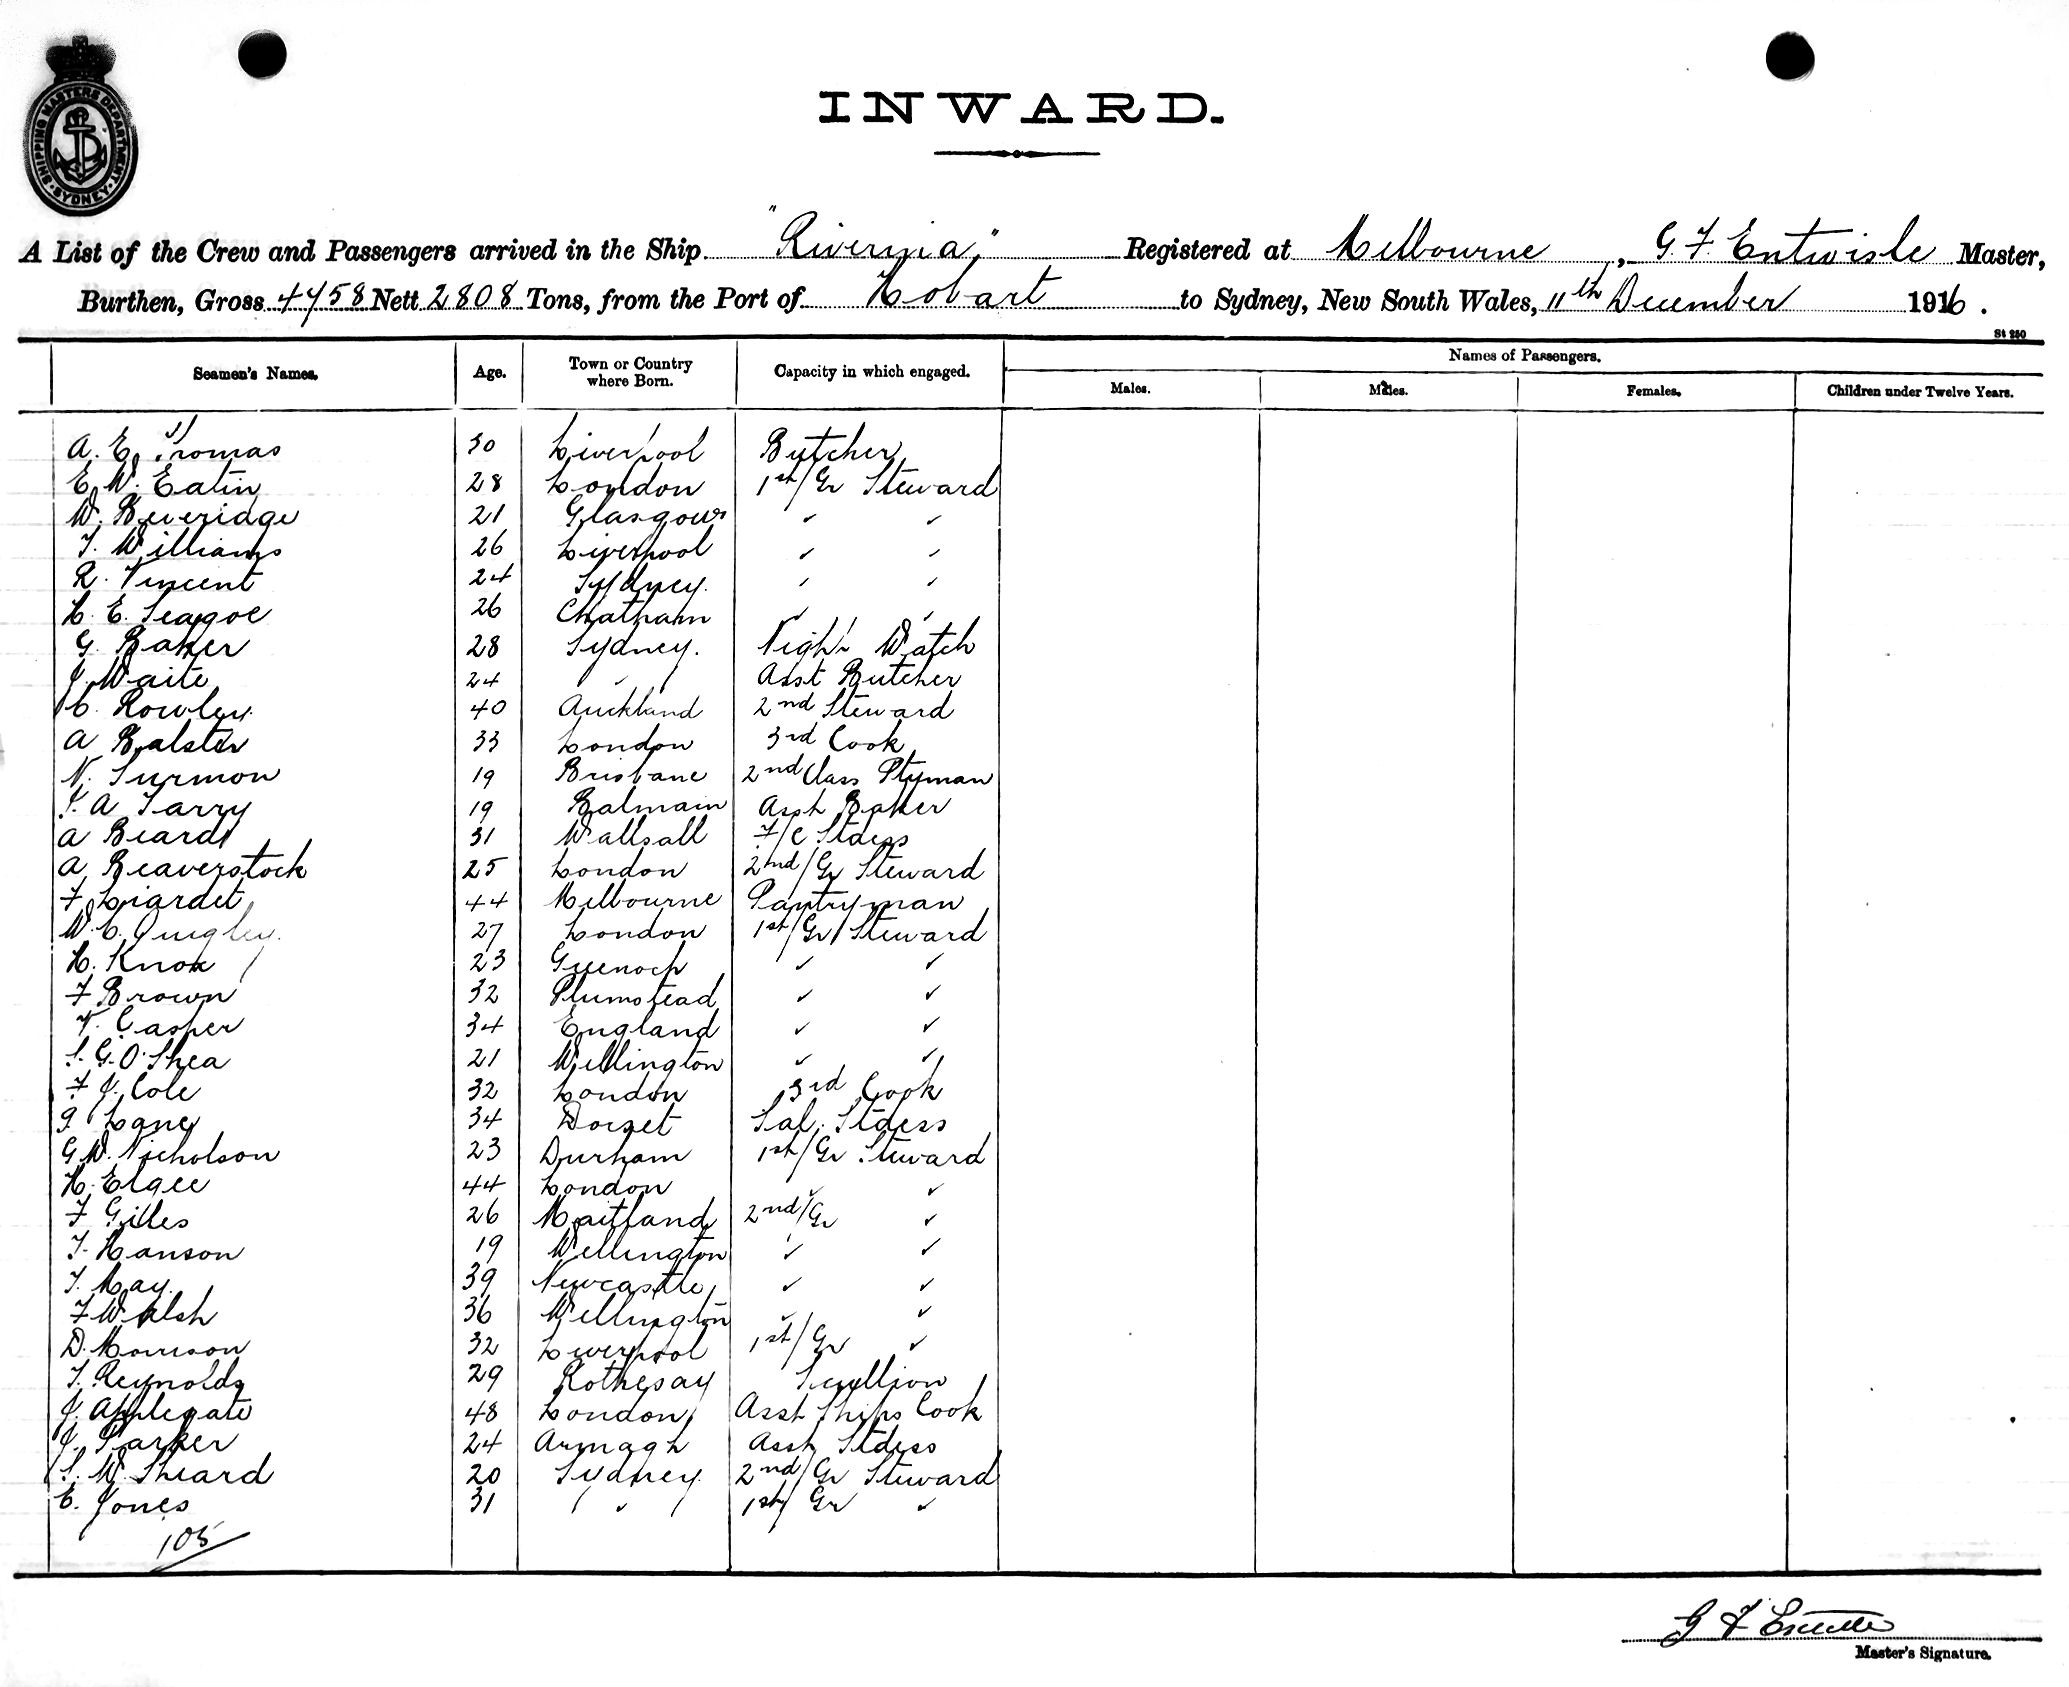 SHIPPING MASTERS DEPARTMENT
SYDNEY
INWARD.
A List of the Crew and Passengers arrived in the Ship "Riverina," Registered at Melbourne, G. F. Entwisle Master,
Burthen, Gross 4758 Nett 2808 Tons, from the Port of Hobart to Sydney, New South Wales, 11th December 1916.
St 250
Seamen's Names. Age. Town or Country where Born. Capacity in which engaged. Names of Passengers.
Males. Males. Females. Children under Twelve Years.
A. E. Thomas 30 Liverpool Butcher
E. W. Eatin 28 London 1st/Gr Steward
W. Beveridge 21 Glasgow ✓ ✓
T. Williams 26 Liverpool ✓ ✓
R. Vincent 24 Sydney. ✓ ✓
H. E. Seagoe 26 Chatham ✓ ✓
G. Baker 28 Sydney. Night Watch
J. Waite 24 ✓ Asst Butcher
C. Rowley 40 Auckland 2nd Steward
A Balster 33 London 3rd Cook
N. Surmon 19 Brisbane 2nd Class Ptyman
J. A Tarry 19 Balmain Asst Baker
A Beard 31 Wallsall F/C Stdess
A Beaverstock 25 London 2nd/Gr Steward
F Liardet 44 Melbourne Pantryman
W. C. Quigley. 27 London 1st/Gr Steward
H. Knox 23 Greenock ✓ ✓
F Brown 32 Plumstead ✓ ✓
V. Casper 34 England ✓ ✓
S. G. O'Shea 21 Wellington ✓ ✓
F J. Cole 32 London 3rd Cook
G Lane 34 Dorset Sal. Stdess
G. W. Nicholson 23 Durham 1st/Gr Steward
H. Elgee 44 London ✓ ✓
F Gilles 26 Maitland 2nd/Gr ✓
T. Hanson 19 Wellington ✓ ✓
T. May. 39 Newcastle ✓ ✓
F Walsh 36 Wellington ✓ ✓
D. Morrison 32 Liverpool 1st/Gr ✓
T. Reynolds 29 Rothesay Scullion
J. Applegate 48 London Asst Ships Cook
J. Parker 24 Armagh Asst Stdess
S. W. Sheard 20 Sydney. 2nd/Gr Steward
E. Jones 31 ✓ 1st/Gr ✓
105
G F Entwisle
Master's Signature.